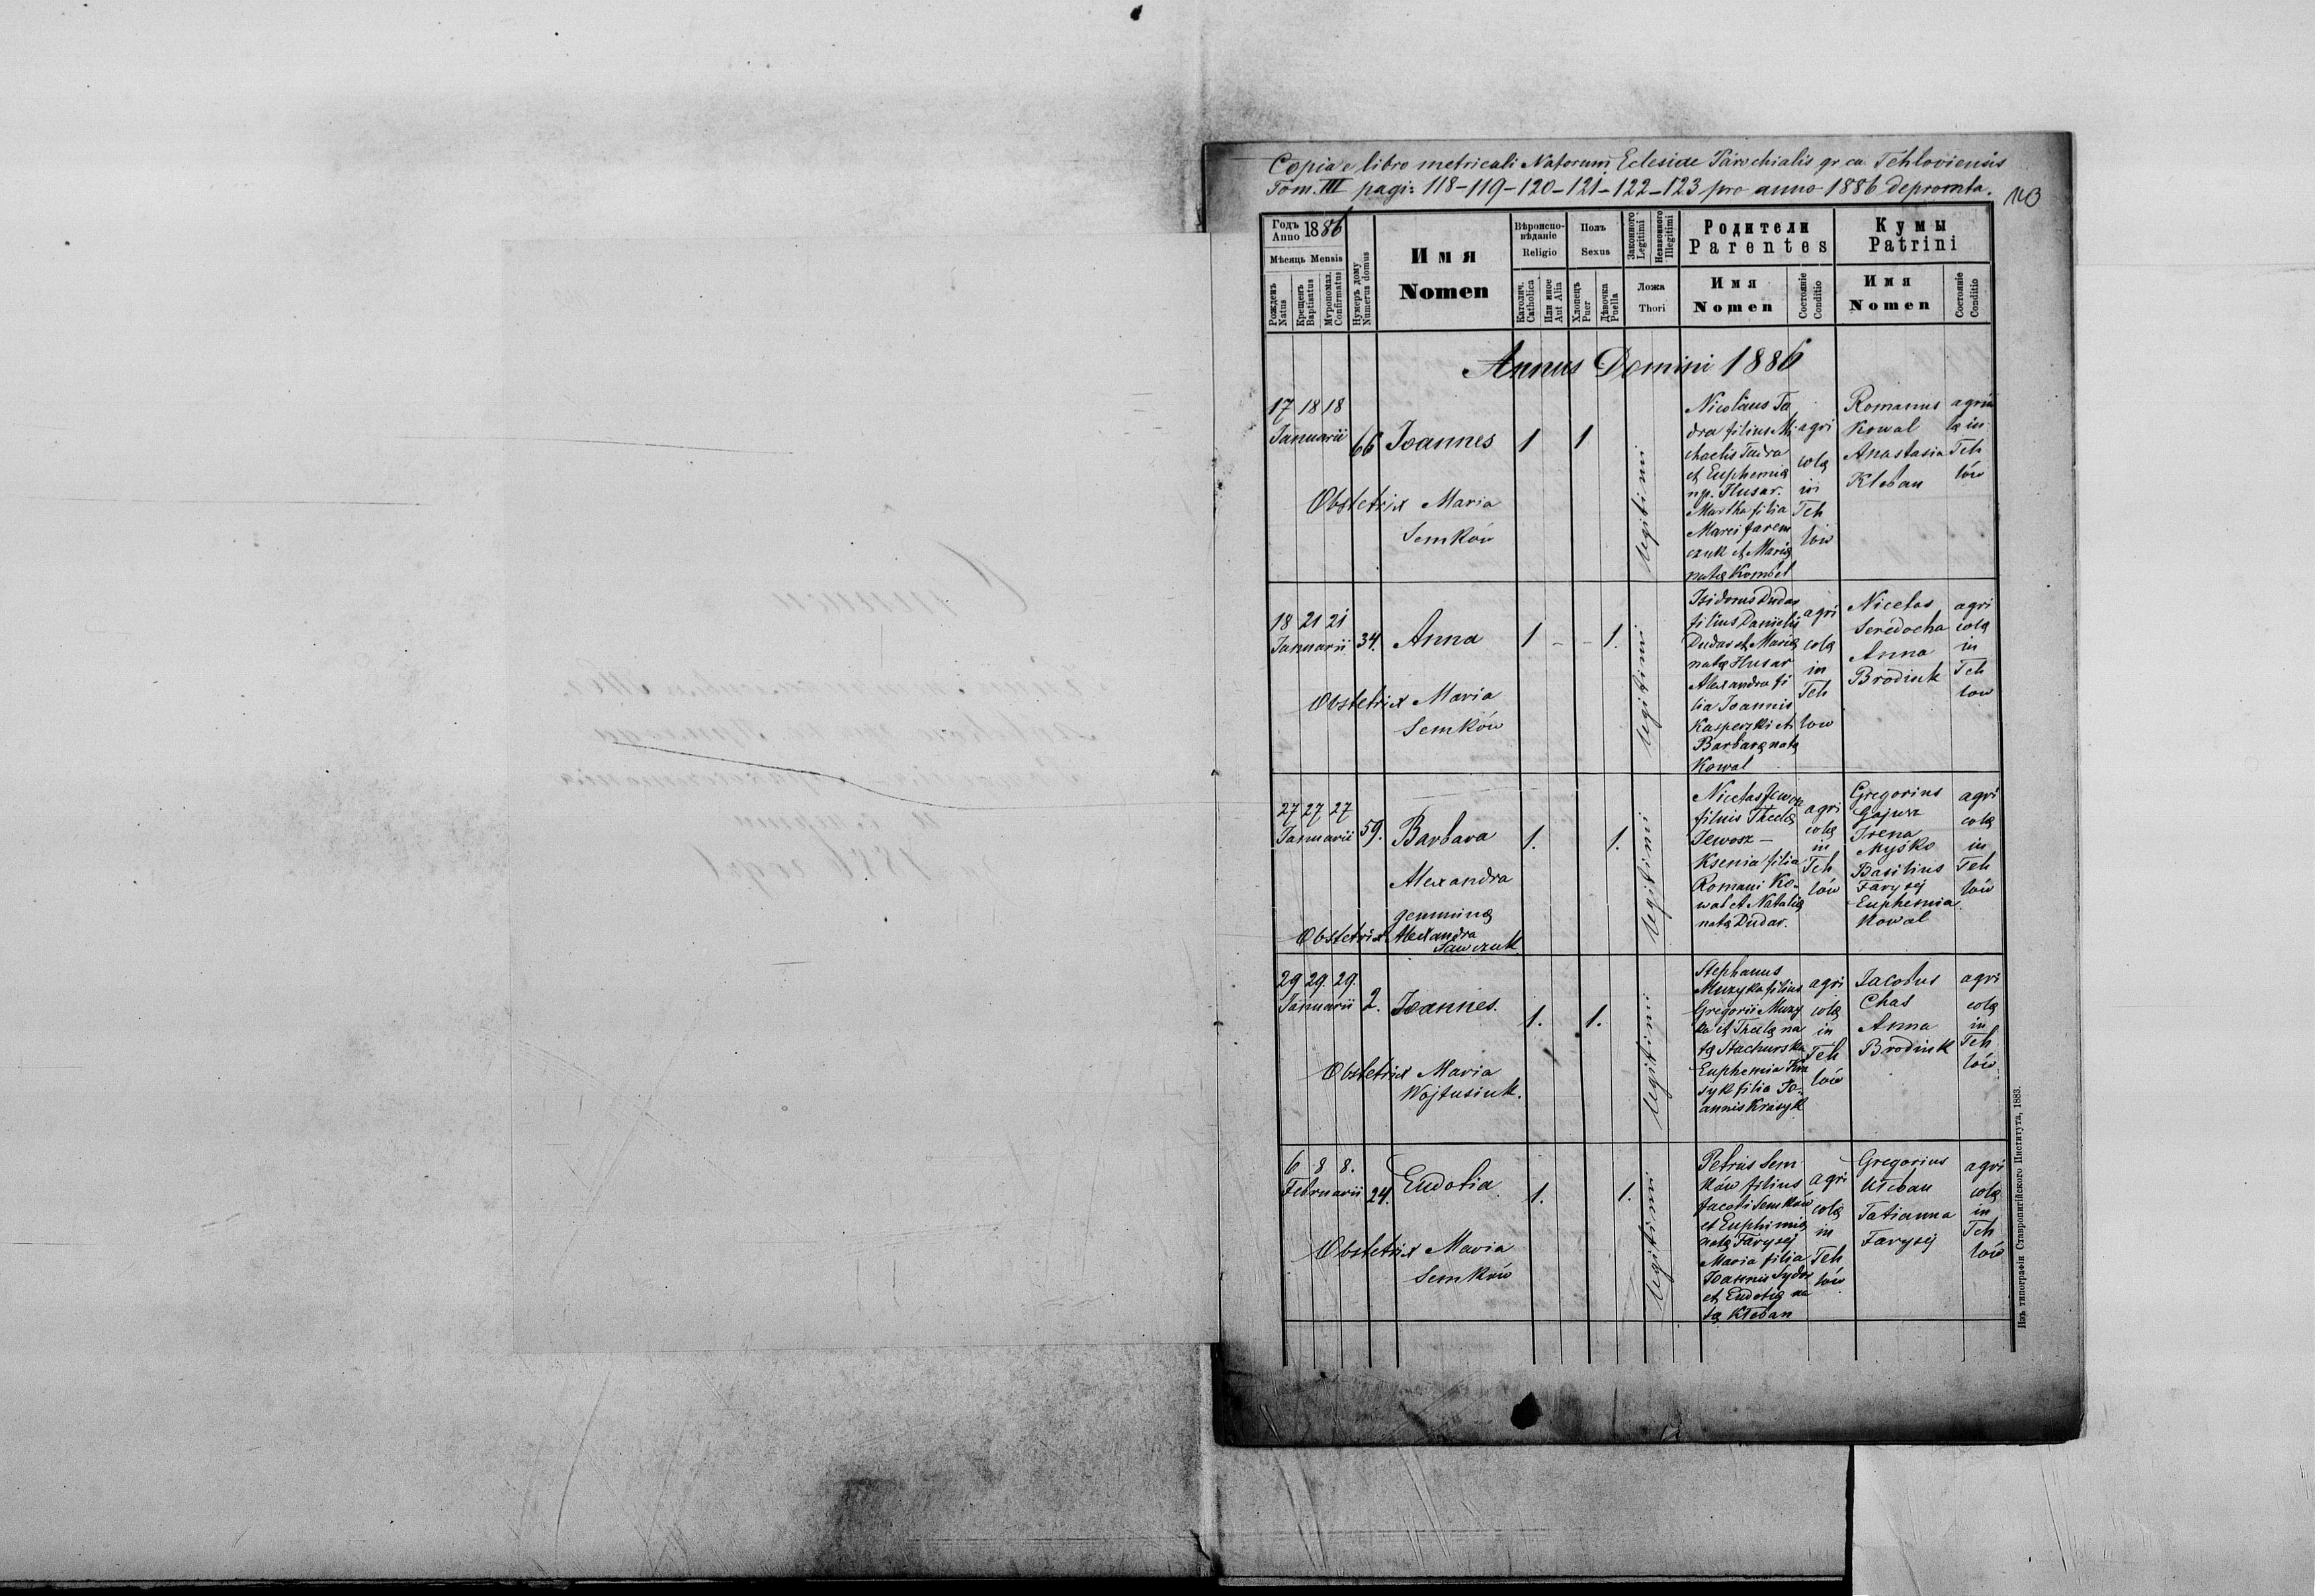 Copia e libro metricali Natorum Eclesiae Parochialis gr. ca. Tehloviensis
Tom. III pagi: 118-119-120-121-122-123 pro anno 1886 depromta.
143
Годъ
Anno 1886
Мѣсяць Mensis
Рожденъ
Natus
Крещенъ
Baptisatus
Мѵропомаз.
Confirmatus
Нумеръ дому
Numerus domus
Имя
Nomen
Вѣроиспо-
вѣданіе
Religio
Католич.
Catholica
Или иное
Aut Alia
Полъ
Sexus
Хлопецъ
Puer
Дѣвочка
Puella
Законного
Legitimi
Незаконного
Illegitimi
Ложа
Thori
Родители
Parentes
Имя
Nomen
Состояніе
Conditio
Кумы
Patrini
Имя
Nomen
Состояніе
Conditio
Annus Domini 1886
17 18 18
Januarii
66
Joannes
1
1
legitimi
Obstetrix Maria
Semków
Nicolaus Ta
dra filius Mi
chaelis Tadra
et Euphemia
np. Husar.
Martha filia
Marci Jarem
czuk et Maria
nata Kombel
agri
cola
in
Teh
lów
Romanus
Kowal
Anastasia
Kleban
agrico
la in
Teh
lów
18 21 21
Januarii
34.
Anna
1 - - 1.
legitimi
Obstetrix Maria
Semków
Isidorus Dudar
filius Danielis
Dudar et Maria
nata Husar
Alexandra fi
lia Joannis
Kasperski et
Barbara nata
Kowal
agri
cola
in
Teh
low
Nicetas
Seredocha
Anna
Brodiuk
agri
cola
in
Teh
low
27 27 27
Januarii
59.
Barbara
Alexandra
gemmina
1.
1.
legitimi
Obstetrix Alexandra
Sawczuk
Nicetas Jewosz
filius Thecla
Jewosz -
Ksenia filia
Romani Ko-
wal et Natalia
nata Dudar.
agri
cola
in
Teh
lów
Gregorius
Gajusz
Irena
Myśko
Basilius
Farysej
Euphemia
Kowal
agri
cola
in
Teh
lów
29 29. 29.
Januarii
2.
Joannes.
1.
1.
legitimi
Obstetrix Maria
Wojtusiuk.
Stephanus
Muzyka filius
Gregorii Muzy
ka et Thecla na
ta Stachurska
Euphemia Kra
syk filia Jo-
annis Krasyk
agri
cola
in
Teh
lów
Jacobus
Chas
Anna
Brodiuk
agri
cola
in
Teh
lów
6 8 8.
Februarii
24.
Eudokia
1.
1.
legitimi
Obstetrix Maria
Semków
Petrus Sem
ków filius
Jacobi Semków
et Euphimia
nata Farysej
Maria filia
Joannis Sydor
et Eudokia na
ta Kleban
agri
cola
in
Teh
lów
Gregorius
Kleban
Tatianna
Farysej
agri
cola
in
Teh
lów
Изъ типографіи Ставропигійского Института, 1883.